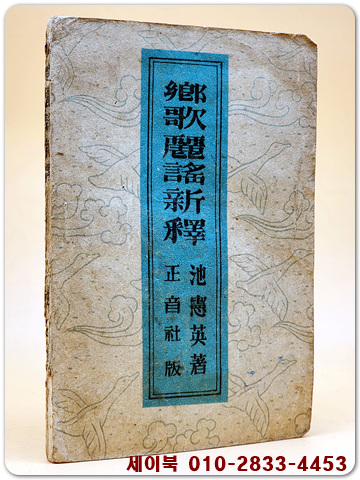 鄕歌麗謠新釋
池憲英著
正音社版
세이북 010-2833-4453